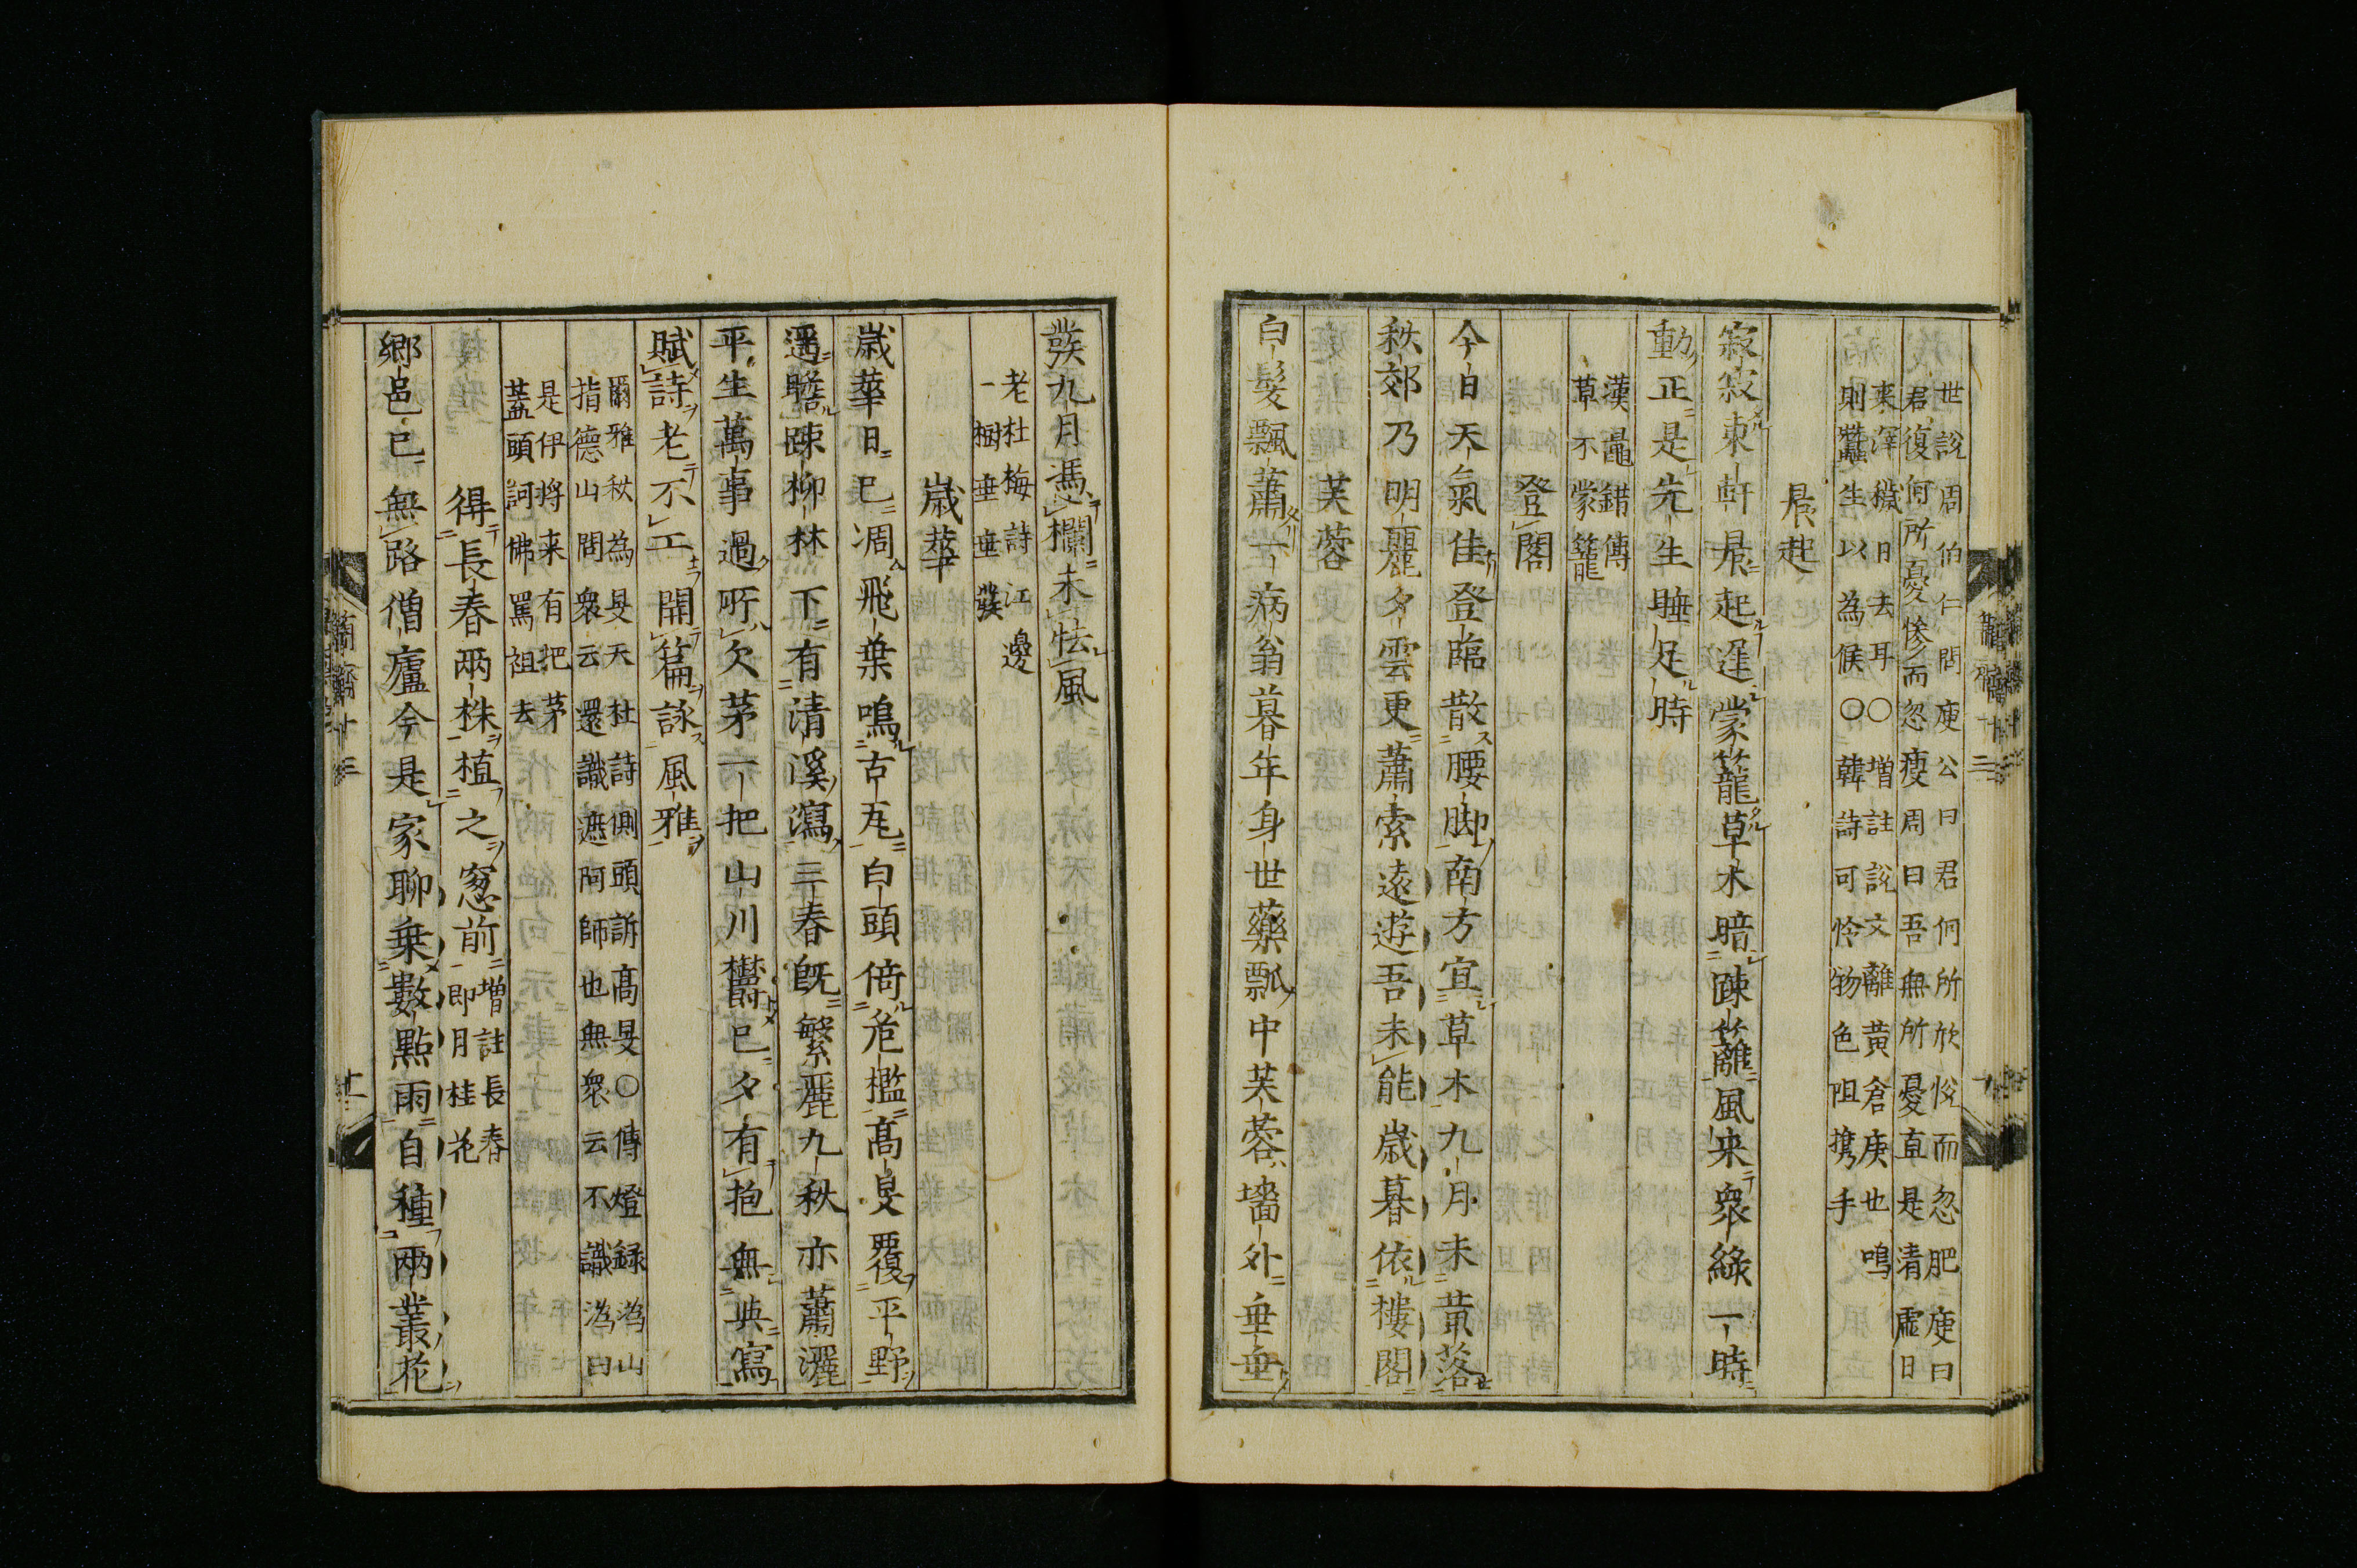 世說周伯仁問庾公曰君何所欣悅而忽肥庾曰
君復何所憂慘而忽瘦周曰吾無所憂直是清虛日
来滓穢日去耳〇增註說文離黃倉庚也鳴
則蠶生以為候〇韓詩可怜物色阻攜手
晨起
寂寂東軒晨起遲蒙籠草木暗踈籬風来衆綠一時
動正是先生睡足時
漢鼂錯傳
草不蒙籠
登閣
今日天氣佳登臨散腰脚南方宜草木九月未黃落
秋郊乃明麗夕雲更蕭索遠遊吾未能歲暮依樓閣
芙蓉
白髮飄蕭一病翁暮年身世藥瓢中芙蓉墻外垂垂
發九月凴欄未怯風
老杜梅詩江邊
一樹垂垂發
歲華
歲華日已凋飛葉鳴古瓦白頭倚危檻高旻覆平野
遥瞻踈柳林下有清溪瀉三春旣繁麗九秋亦蕭灑
平生萬事過所欠茅一把山川欝已夕有抱無與寫
賦詩老不工開篇詠風雅
爾雅秋為旻天杜詩側頭訴高旻〇傳燈録溈山
指德山問衆云還識遮阿師也無衆云不識溈曰
是伊将来有把茅
蓋頭訶佛罵祖去
得長春兩株植之窓前增註長春
即月桂花
鄉邑已無路僧廬今是家聊乗數點雨自種兩叢花
簡齋十三
十一